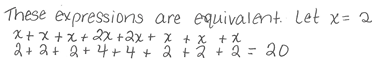 These expressions are equivalent. Let x = 2
x + x + x + 2x + 2x + x + x + x
2 + 2 + 2 + 4 + 4 + 2 + 2 + 2 = 20